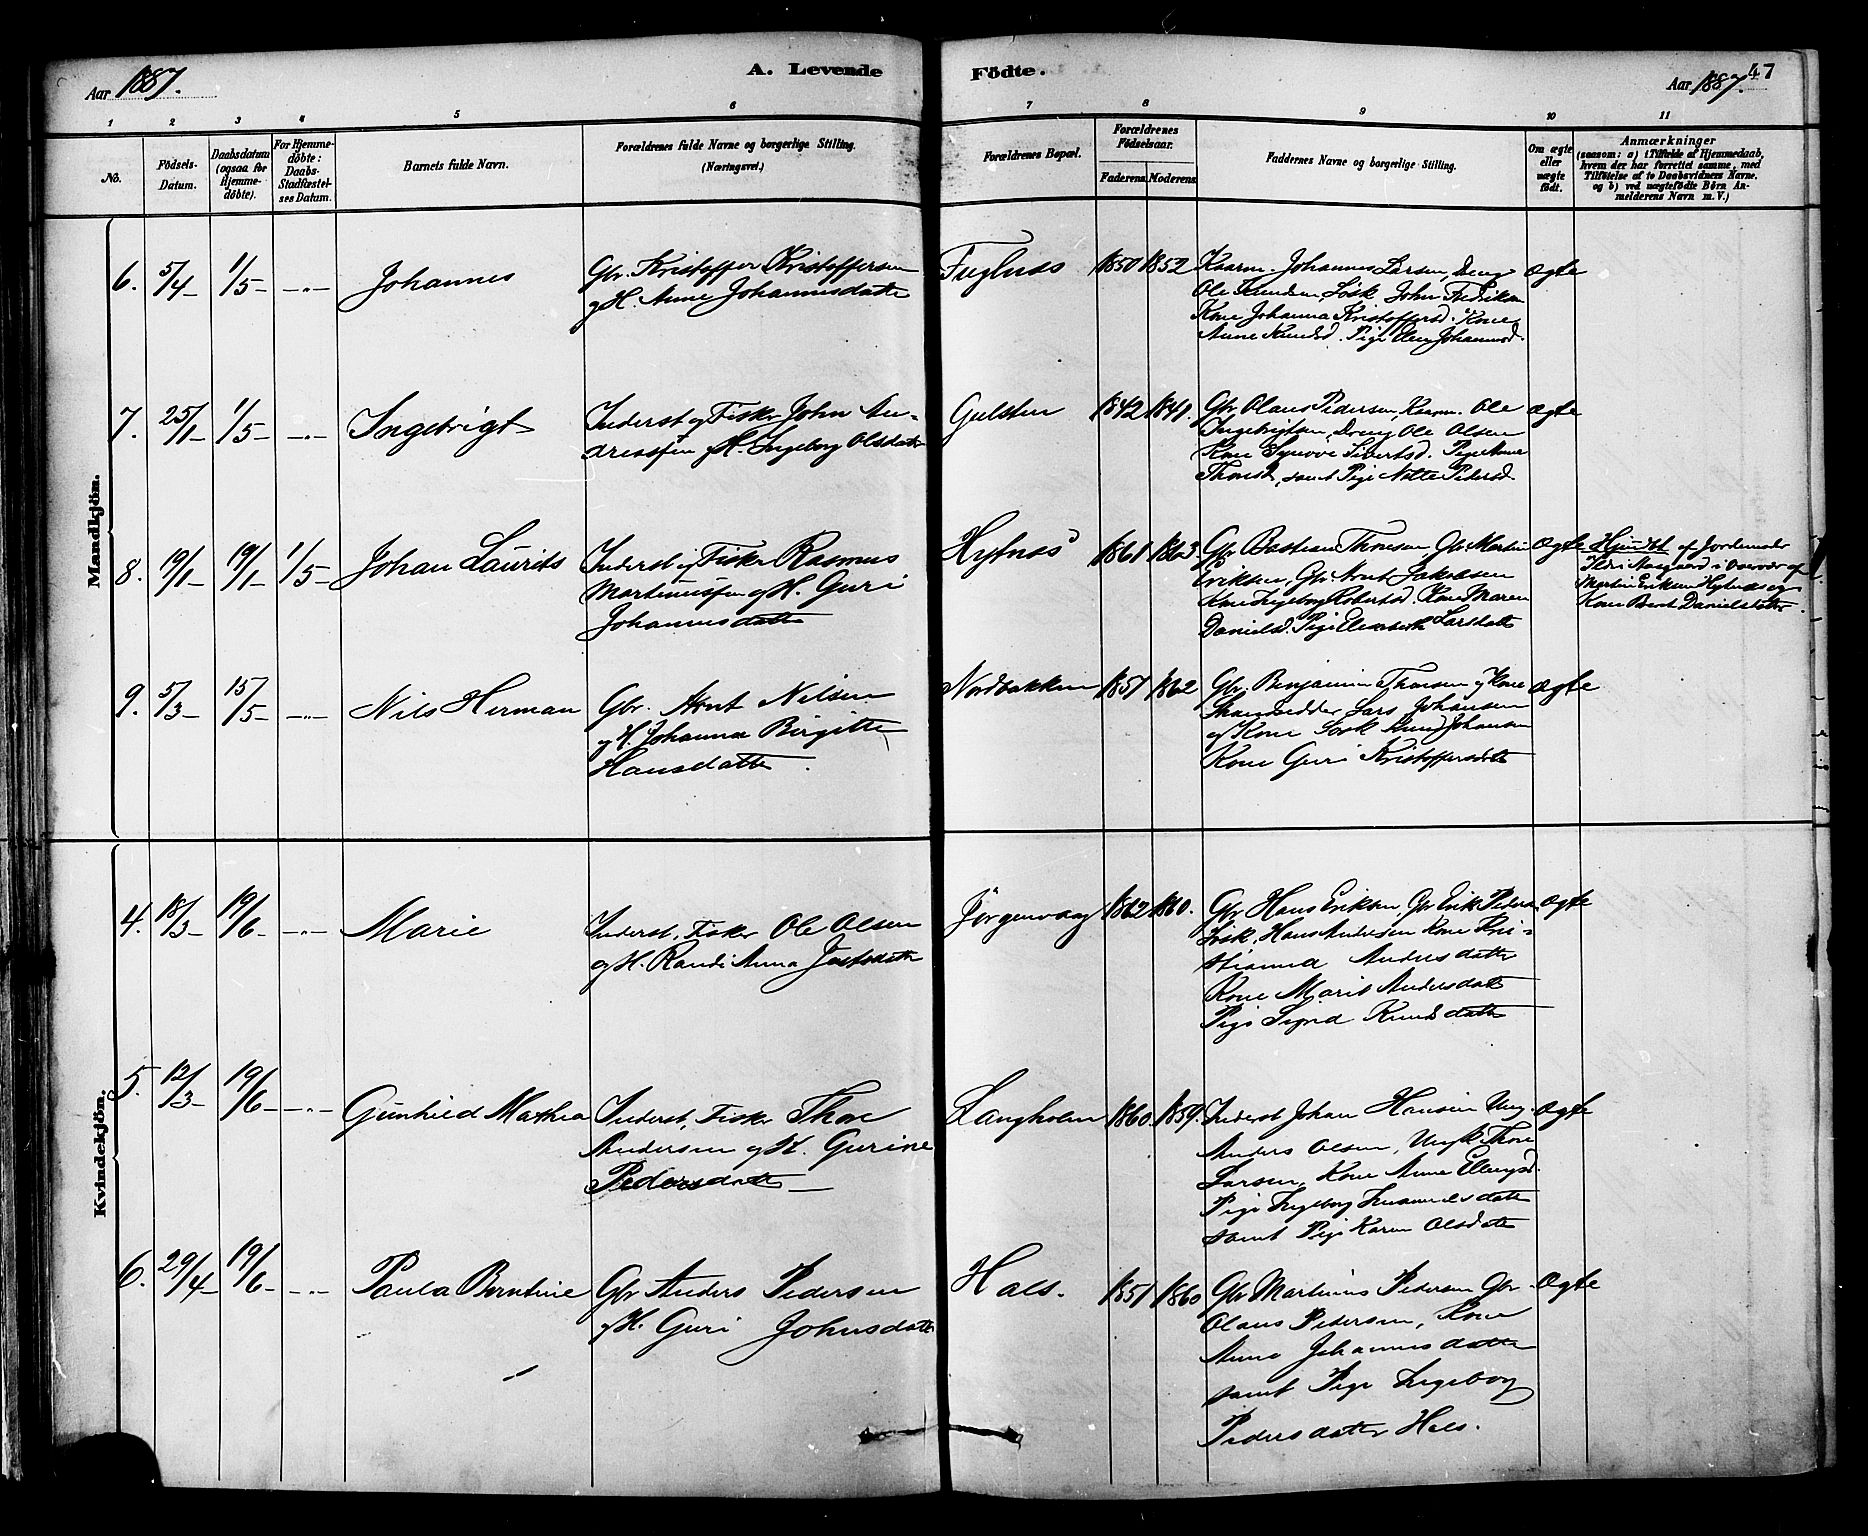 Aar 1887.
A. Levende
Födte.
Aar 1887.
47
1 2 3 4 5 6 7 8 9 10 11
No.
Födsels-
Datum.
Daabsdatum
(ogsaa for
Hjemme-
döbte).
For Hjemme-
döbte:
Daabs-
Stadfæstel-
ses Datum.
Barnets fulde Navn.
Forældrenes fulde Navne og borgerlige Stilling.
(Næringsvei.)
Forældrenes Bopæl.
Forældrenes
Födselsaar.
Faderens
Moderens
Faddernes Navne og borgerlige Stilling.
Om ægte
eller
uægte
födt.
Anmærkninger
(saasom: a) i Tilfælde af Hjemmedaab,
hvem der har forrettet samme, med
Tilföielse af to Daabsvidners Navne,
og b) ved uægtefödte Börn An-
melderens Navn m. V.)
Mandkjön.
6. 5/4 1/5 -„- Johannes
Gbr. Kristoffer Kristoffersen
og H. Anne Johannesdatter
Fuglnæs 1850 1852
Kaarm. Johannes Larsen, Dreng
Ole Knudsen, Løsk John Fredriksen
Kone Johanna Kristoffersd. Kone
Anne Knudsd. Pige Johannesd.
Ægte
7. 25/1 1/5 -„- Ingebrigt
Inderst og Fisker John An-
dreassen og H. Ingeborg Olsdatter
Gulsten 1842 1841.
Gbr Olaus Pedersen, Kaarm. Ole
Ingebrigtsen, Dreng Ole Olsen
Kone Synnøve Sivertsd. Pige Anne
samt Pige Pedersd.
Ægte
8. 19/1 19/1 1/5 Johan Laurits
Inderst og Fisker Rasmus
Martinussen og H. Guri
Johannesdatter
Hylnæs 1861 1863.
Gbr Bastian Thoresen Gbr Martin
Eriksen, Gbr Arnt Jakobsen
Kone Ingeborg Robertsd. Kone Maren
Danielsd. Pige Elisabeth Larsdatter
Ægte
Hjemdbt af Jordemoder
Aasgaard i Overvær af
Martin Eriksen Hylnæs og
Kone Berit Danielsdatter.
9. 5/3 15/5 -„- Nils Herman
Gbr. Arnt Nilsen
og H. Johanna Birgitte
Hansdatter.
Nordbakken 1857 1862
Gbr Benjamin Thoresen og Kone
Lars Johansen
og Kone Løsk Johansen
Kone Guri Kristoffersdatter
Ægte
Kvindekjön.
4. 18/3 19/6 -„- Marie
Inderst, Fisker Ole Olsen
og H. Randi Anna Justsdatter
Jörgenvaag 1862 1860.
Gbr Hans Eriksen, Gbr Erik Pedersen
Løsk. Hans Andersen Kone Kri-
stianna Andersdatter
Kone Marit Andersdatter
Pige Sigrid Knudsdatter
Ægte
5. 12/3 19/6 -„- Gunhild Mathea
Inderst, Fisker Thore
Andersen og H. Gurine
Pedersdatter
Langholm 1860. 1859.
Inderst Johan Hansen Ung.
Anders Olsen, Ungk Thore
Larsen, Kone Anne Ellingsd.
Pige Ingeborg Emanuelsdatter
samt Pige Karen Olsdatter
Ægte
6. 29/4 19/6 -„- Paula Berntine
Gbr Anders Pedersen
og H. Guri Johnsdatter
Hals. 1857 1860
Gbr Martinus Pedersen Gbr
Olaus Pedersen, Kone
Anne Johannesdatter
samt Pige Ingeborg
Pedersdatter Hals.
Ægte